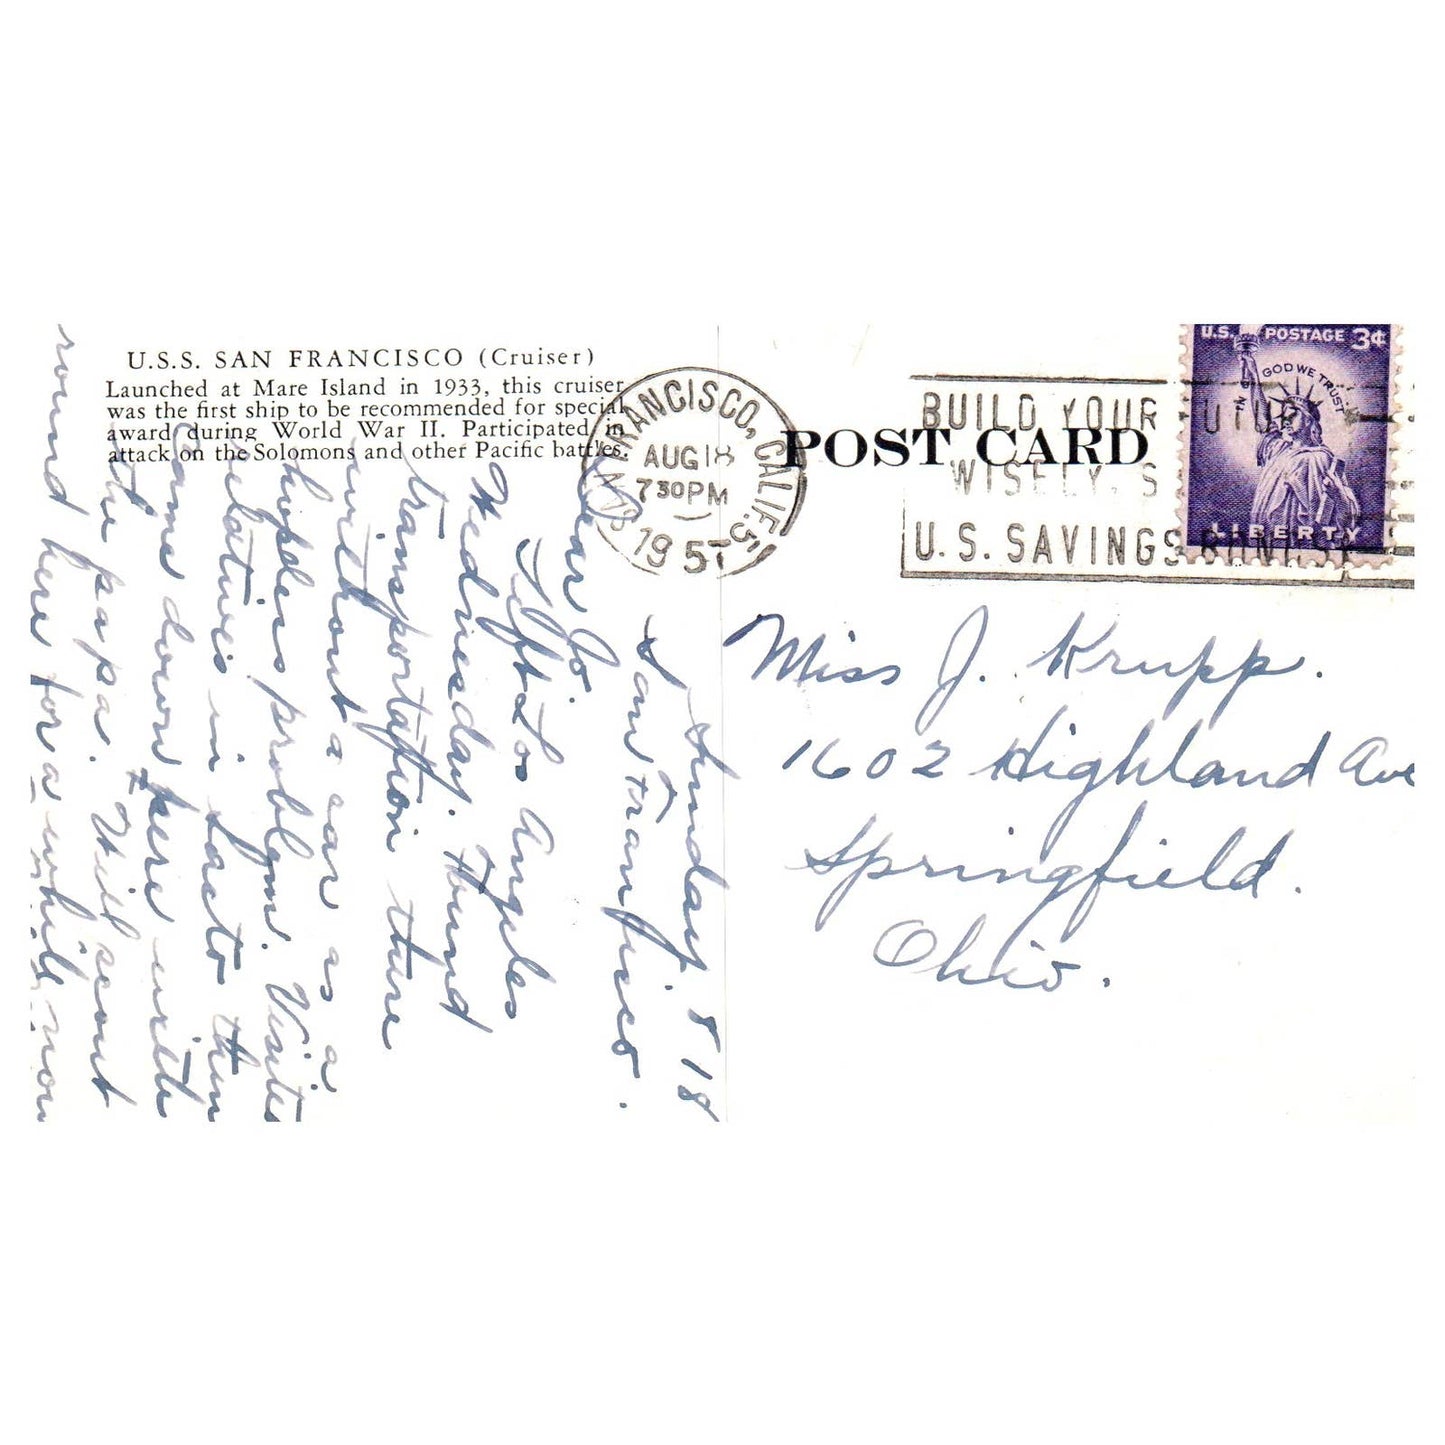 U.S.S. SAN FRANCISCO (Cruiser)
Launched at Mare Island in 1933, this cruiser
was the first ship to be recommended for special
award during World War II. Participated in
attack on the Solomons and other Pacific battles.
Sunday. 8 18
San Francisco.
Dear Jo
Left Los Angeles
Wednesday. Found
transportation there
without a car is a
hopeless problem. Visited
relatives in Sacto then
came down here with
the papa. Will scout
round here for a while now
SAN FRANCISCO, CALIF.
AUG 18
7 30 PM
1957
POST CARD
BUILD YOUR FUTURE
WISELY, S
U.S. SAVINGS BONDS
U.S. POSTAGE 3¢
IN GOD WE TRUST
LIBERTY
Miss J. Krupp.
1602 Highland Ave
Springfield.
Ohio.